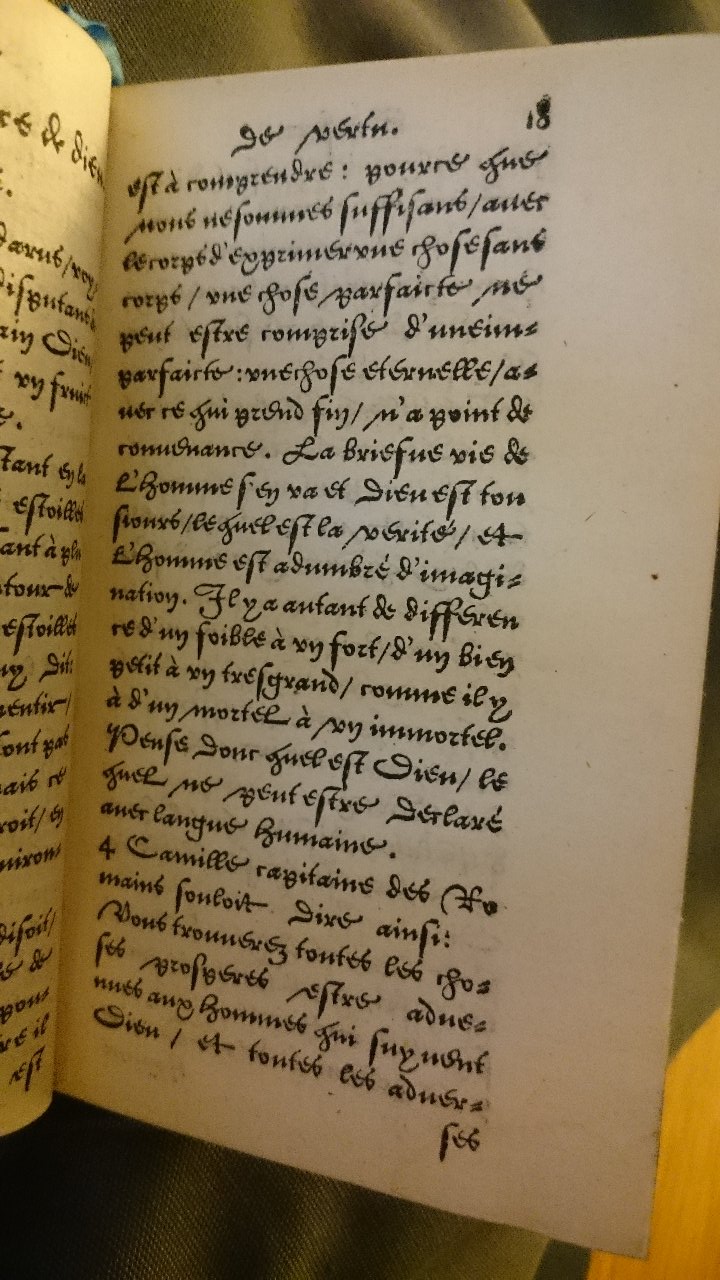 re de dieu
darus/roy
disputant
rain Dieu
vn fruit
tant en la
estoilles
ant à plu
tour de
estoilles
dit
mentir/
sont pas
mais ce
roit/en
miron-
disoit/
de
pou-
re il
est
de vertu. 18
est à comprendre : pource que
nous ne sommes suffisans/auec
le corps d'exprimer vne chose sans
corps / vne chose parfaicte ne
peut estre comprise d'vne im-
parfaicte : vne chose eternelle/a-
uec ce qui prend fin/ n'a point de
conuenance. La briefue vie de
L'homme s'en va et Dieu est tou
siours/lequel est la verité/ et
L'homme est adumbré d'imagi-
nation. Il y a autant de differen
ce d'un foible à vn fort/d'un bien
petit à vn tresgrand/ comme il y
à d'un mortel à vn immortel.
Pense donc quel est Dieu/ le
quel ne peut estre declaré
auec langue humaine.
4 Camille capitaine des Ro
mains souloit dire ainsi:
Vous trouuerez toutes les cho-
ses prosperes estre adue-
nues aux hommes qui suyuent
Dieu / et toutes les aduer-
ses